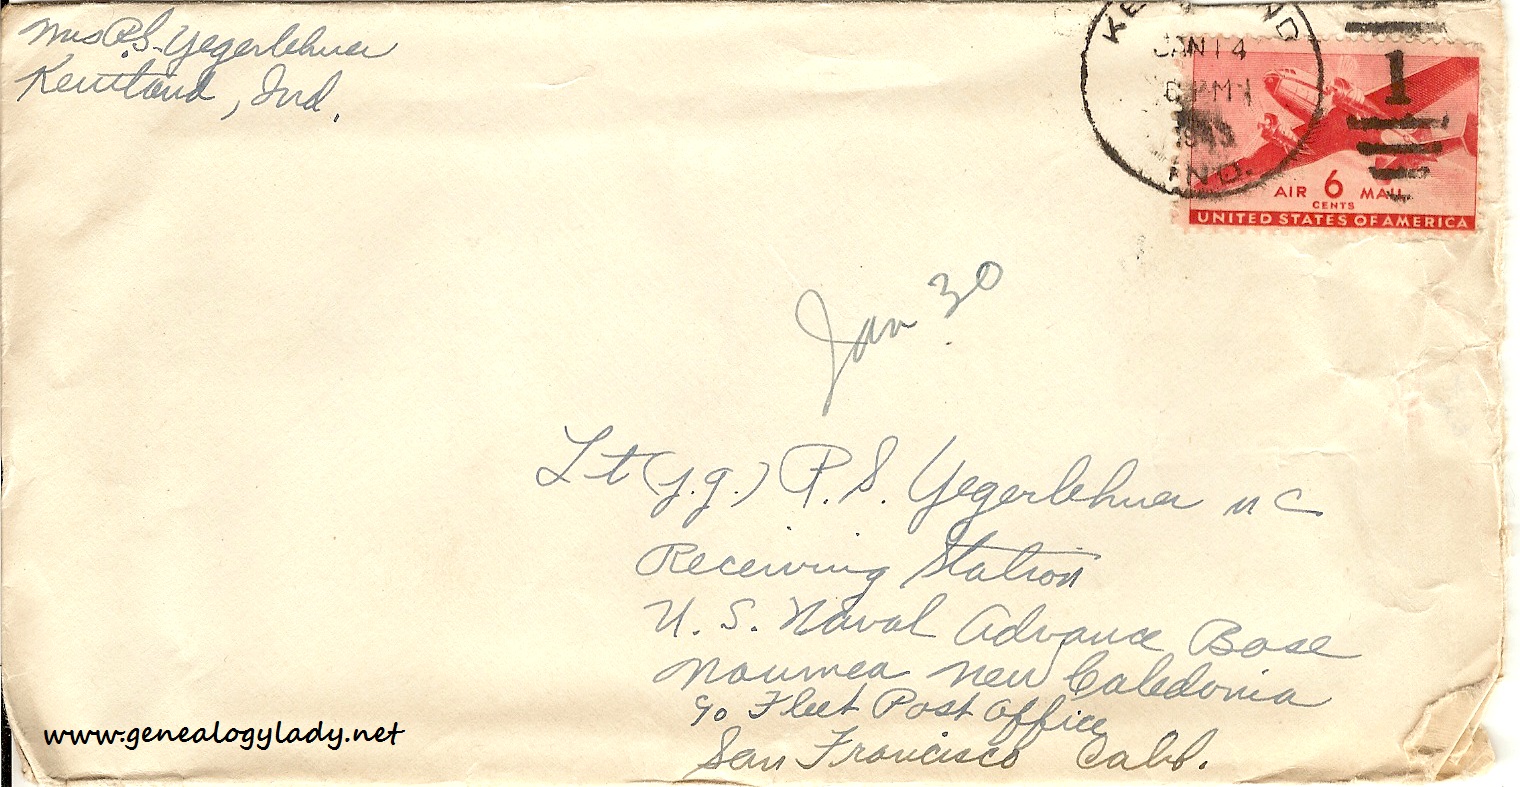 Mrs R.S. Yegerlehner
Kentland, Ind.
KE ND
JAN 14
PM
194
IND.
1
AIR 6 MAIL
CENTS
UNITED STATES OF AMERICA
Jan 30
Lt (j.g.) R. S. Yegerlehner MC
Receiving Station
U. S. Naval Advance Base
Noumea New Caledonia
c/o Fleet Post Office
San Francisco Calif.
www.genealogylady.net